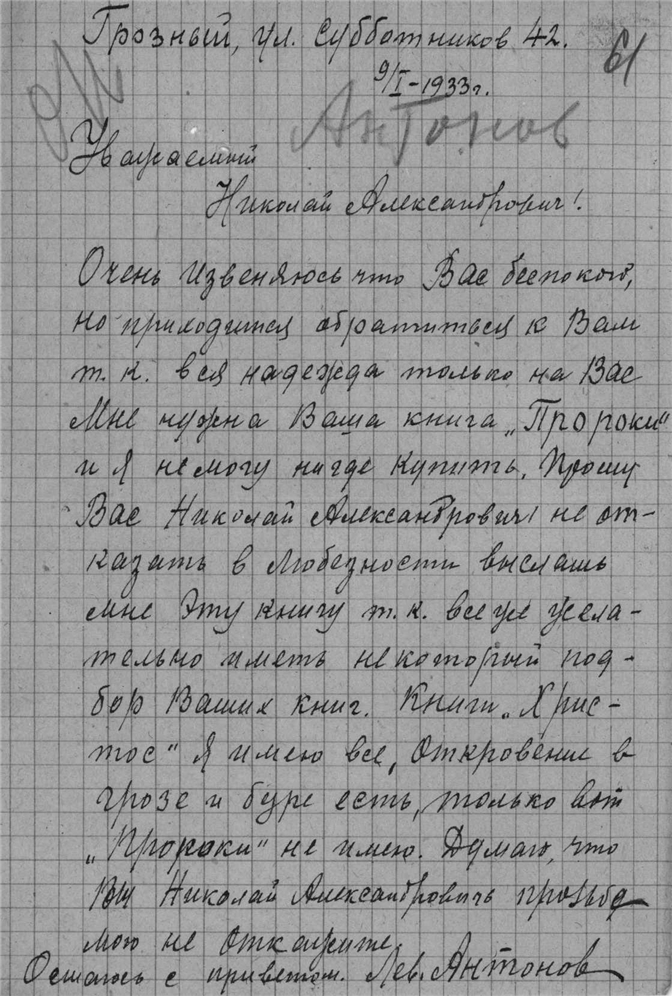 Грозный, ул. Субботников 42.
61
9/I-1933 г.
Антонов
Уважаемый
Николай Александрович!
Очень извеняюсь что Вас беспокою,
но приходится обратиться к Вам
т.к. вся надежда только на Вас
Мне нужна Ваша книга „Пророки"
и я немогу нигде купить. Прошу
Вас Николай Александрович! не от-
казать в любезности выслать
мне эту книгу т.к. все же жела-
тельно иметь некоторый под-
бор Ваших книг. Книги „Хрис-
тос" я имею все, Откровение в
грозе и буре есть, только вот
„Пророки" не имею. Думаю, что
Вы Николай Александровичь прозьбу
мою не откажите.
Остаюсь с приветом. Лев. Антонов